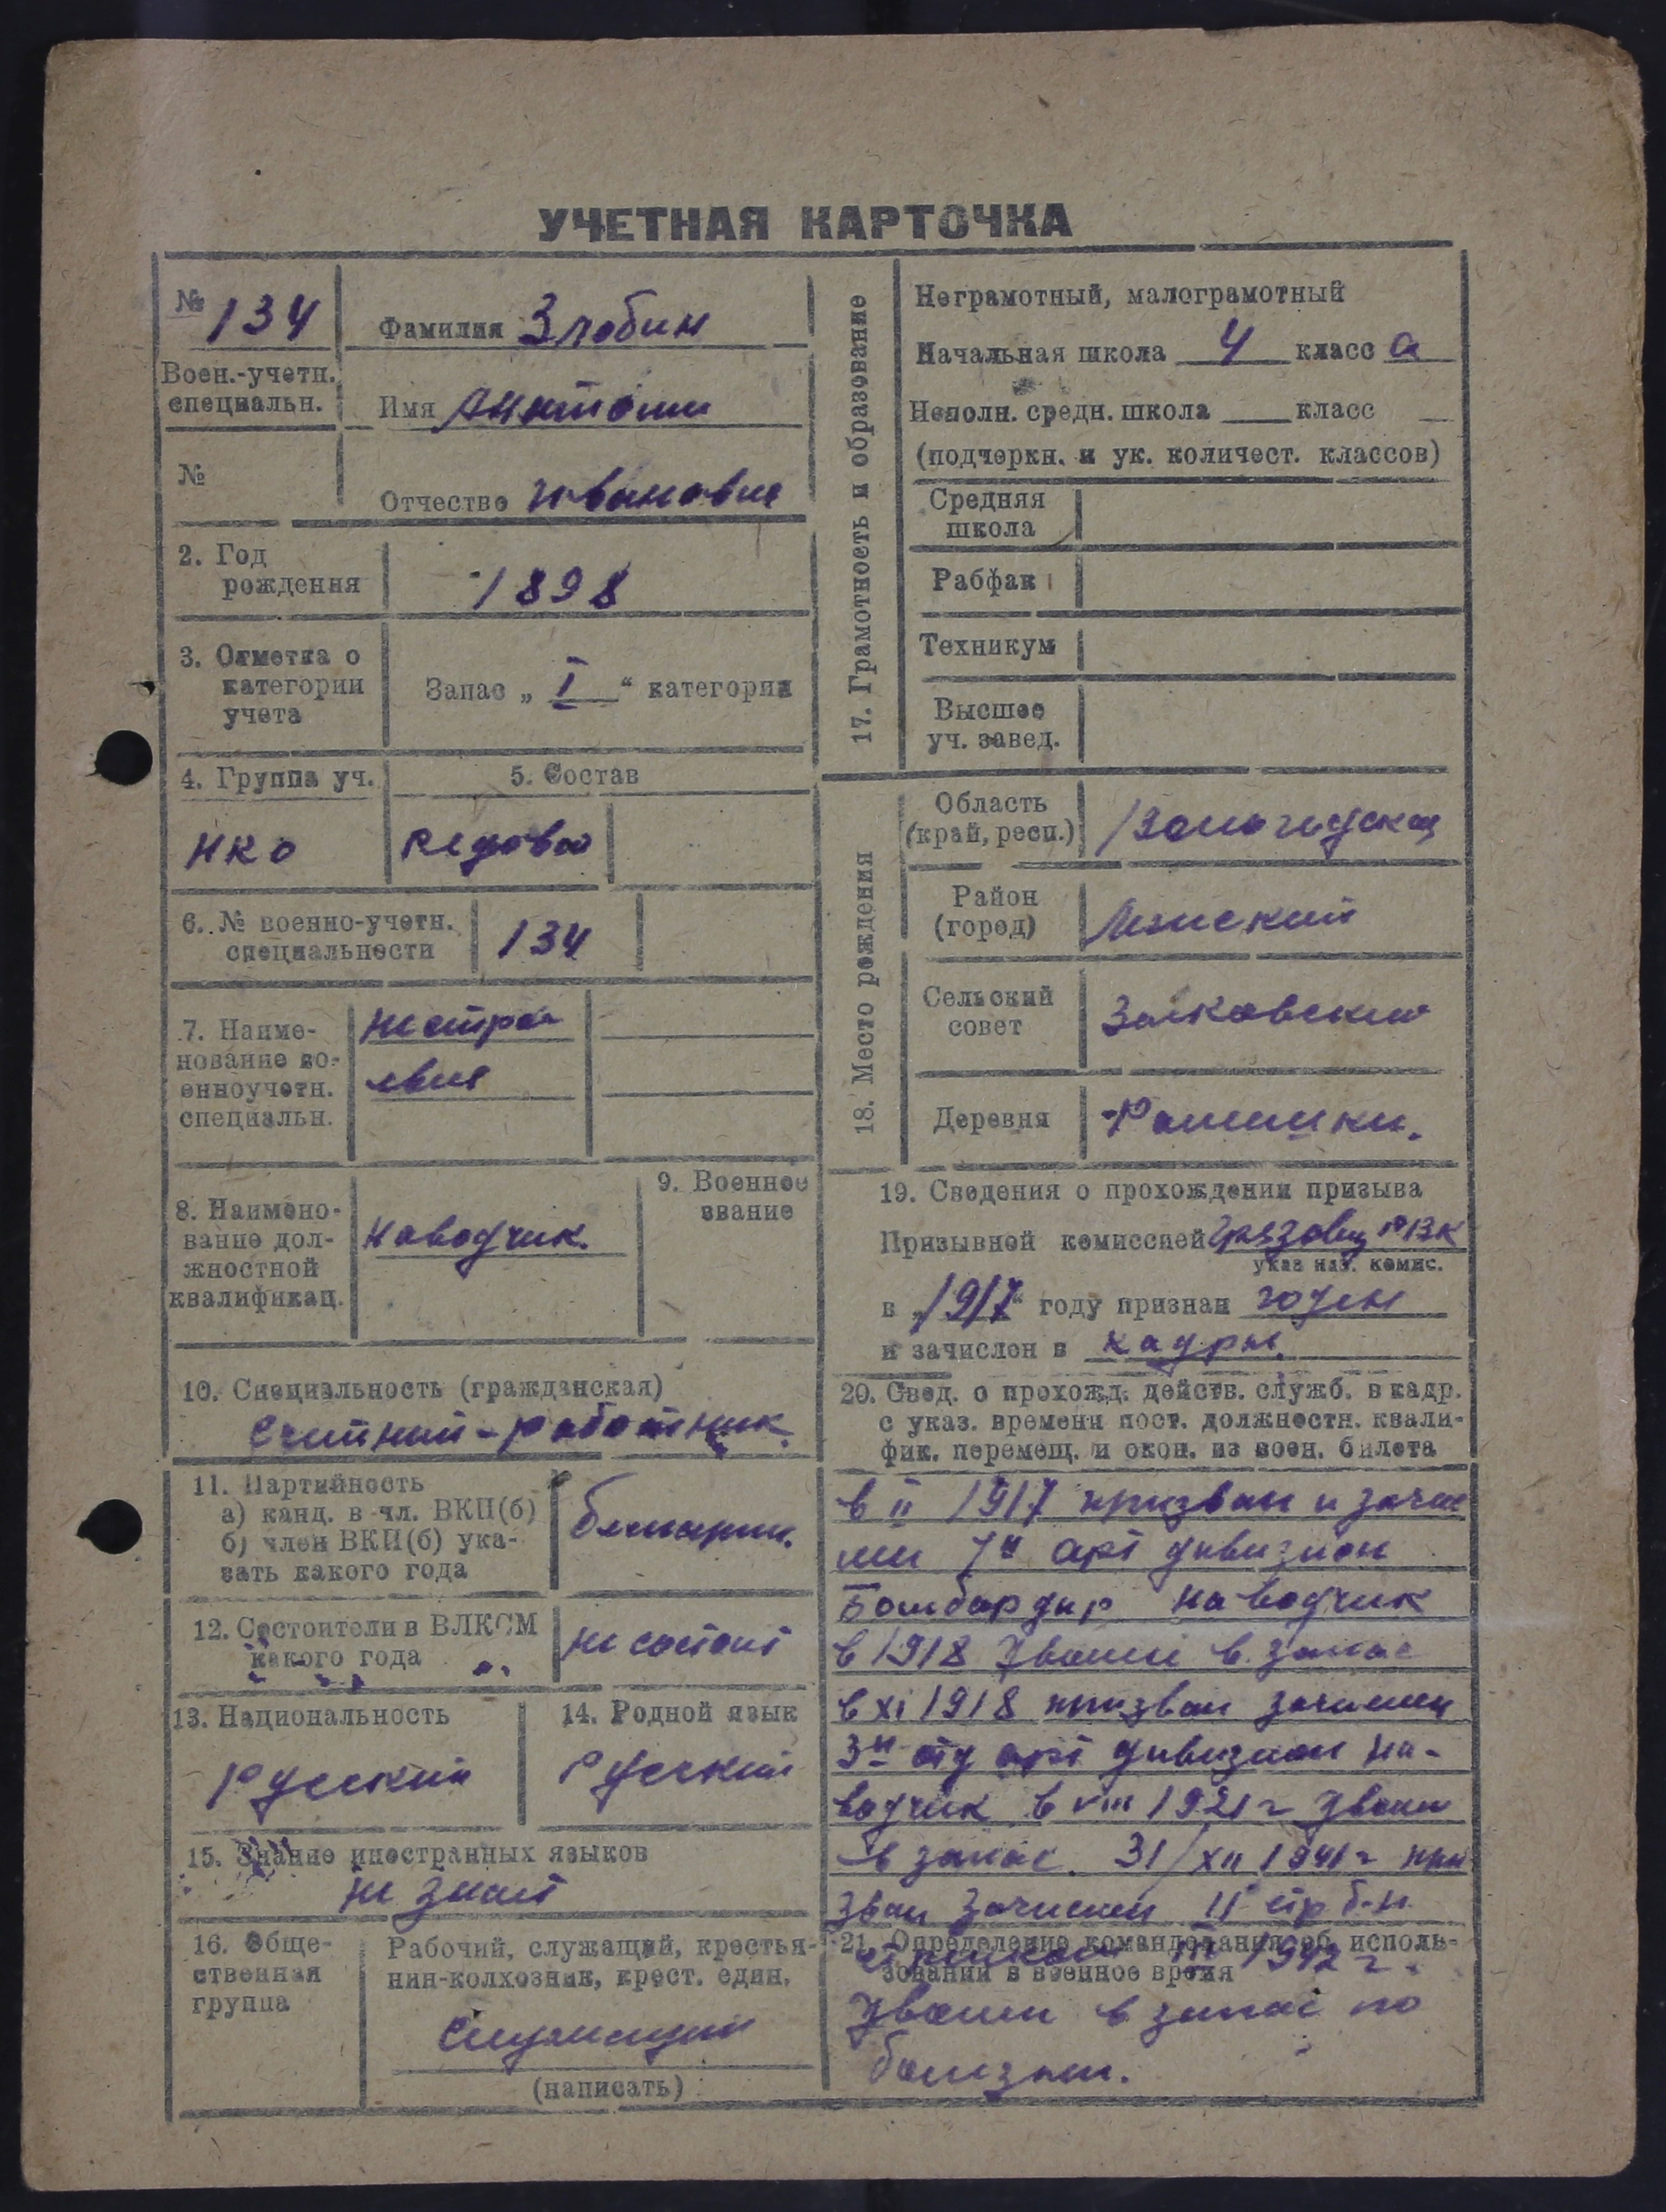 УЧЕТНАЯ КАРТОЧКА
№ 134
Воен.-учетн.
специальн.
№
Фамилия Злобин
Имя
Отчество Иванович
2. Год
рождения
1898
3. Отметка о
категории
учета
Запас „ I “ категории
4. Группа уч.
НКО
5. Состав
Рядовой
6. № военно-учетн.
специальности
134
7. Наиме-
нование во-
енноучетн.
специальн.
нестрое
вая
8. Наимено-
вание дол-
жностной
квалификац.
Наводчик.
9. Военное
звание
10. Специальность (гражданская)
Счетный-работник.
11. Партийность
а) канд. в чл. ВКП(б)
б) член ВКП(б) ука-
зать какого года
беспартн.
12. Состоит ли в ВЛКСМ
какого года
не состоит
13. Национальность
Русский
14. Родной язык
Русский
15. Знание иностранных языков
не знает
16. Обще-
ственная
группа
Рабочий, служащий, крестья-
нин-колхозник, крест. един.
Служащий
(написать)
17. Грамотность и образование
Неграмотный, малограмотный
Начальная школа 4 класс а
Неполн. средн. школа класс
(подчеркн. и ук. количест. классов)
Средняя
школа
Рабфак
Техникум
Высшее
уч. завед.
18. Место рождения
Область
(край, респ.)
Вологодская
Район
(город)
Сельский
совет
Деревня
19. Сведения о прохождении призыва
Призывной комиссией Грязовец РВК
указ наз. комис.
в „1917“ году признан годен
и зачислен в кадры.
20. Свед. о прохожд. действ. служб. в кадр.
с указ. времени пост. должностн. квали-
фик. перемещ. и окон. из воен. билета
в II 1917 призван и зачис
лен 7й арт дивизион
Бомбардир наводчик
в 1918 Уволен в запас
в XI 1918 призван зачислен
3й отд арт дивизион на-
водчик в VIII 1921 г Уволен
в запас. 31/XII 1941 г при
зван зачислен II стр б-н
стрелком III 1942 г.
21. Определение командования об исполь-
зовании в военное время
Уволен в запас по
болезни.